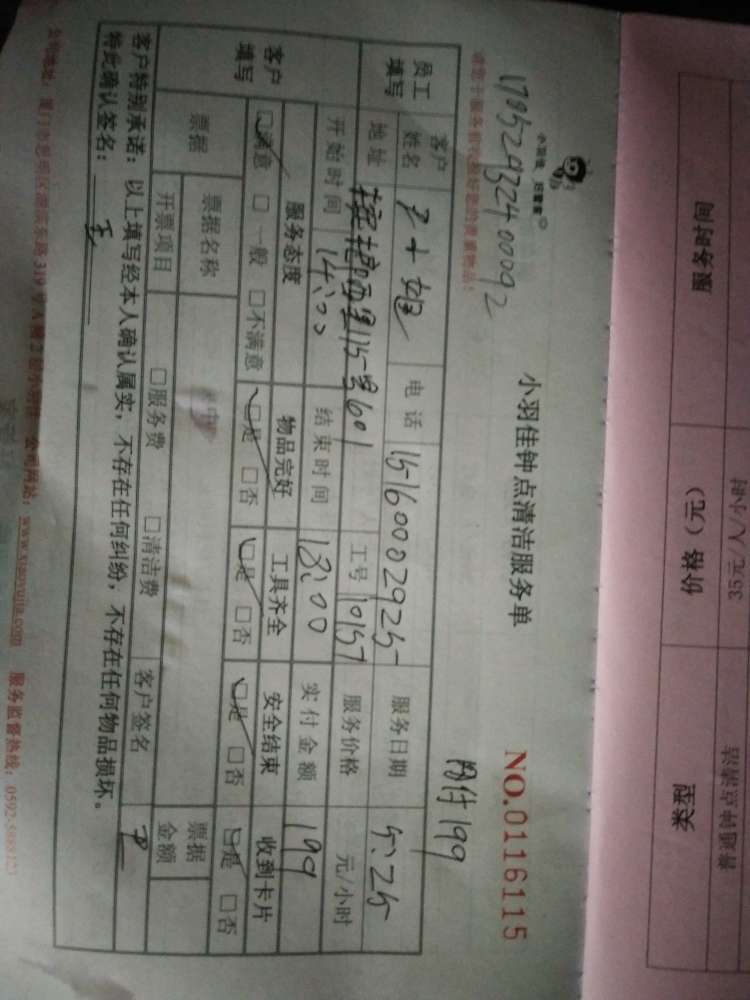 服务时间
价格（元）
类型
35元/人/小时
普通钟点清洁
小羽佳 好管家
小羽佳钟点清洁服务单
NO.0116115
网付199
员工填写
客户姓名
电话
15160002925
服务日期
5.25
地址
601
工号
10157
服务价格
元/小时
开始时间
14:00
结束时间
18:00
实付金额
199
客户填写
服务态度
物品完好
工具齐全
安全结束
收到卡片
☑满意 □一般 □不满意
☑是 □否
☑是 □否
☑是 □否
☑是 □否
票据
票据名称
票据金额
开票项目
□服务费 □清洁费
客户签名
客户特别承诺：以上填写经本人确认属实，不存在任何纠纷，不存在任何物品损坏。
特此确认签名：
公司网站：www.xiaoyujia.com 服务监督热线：